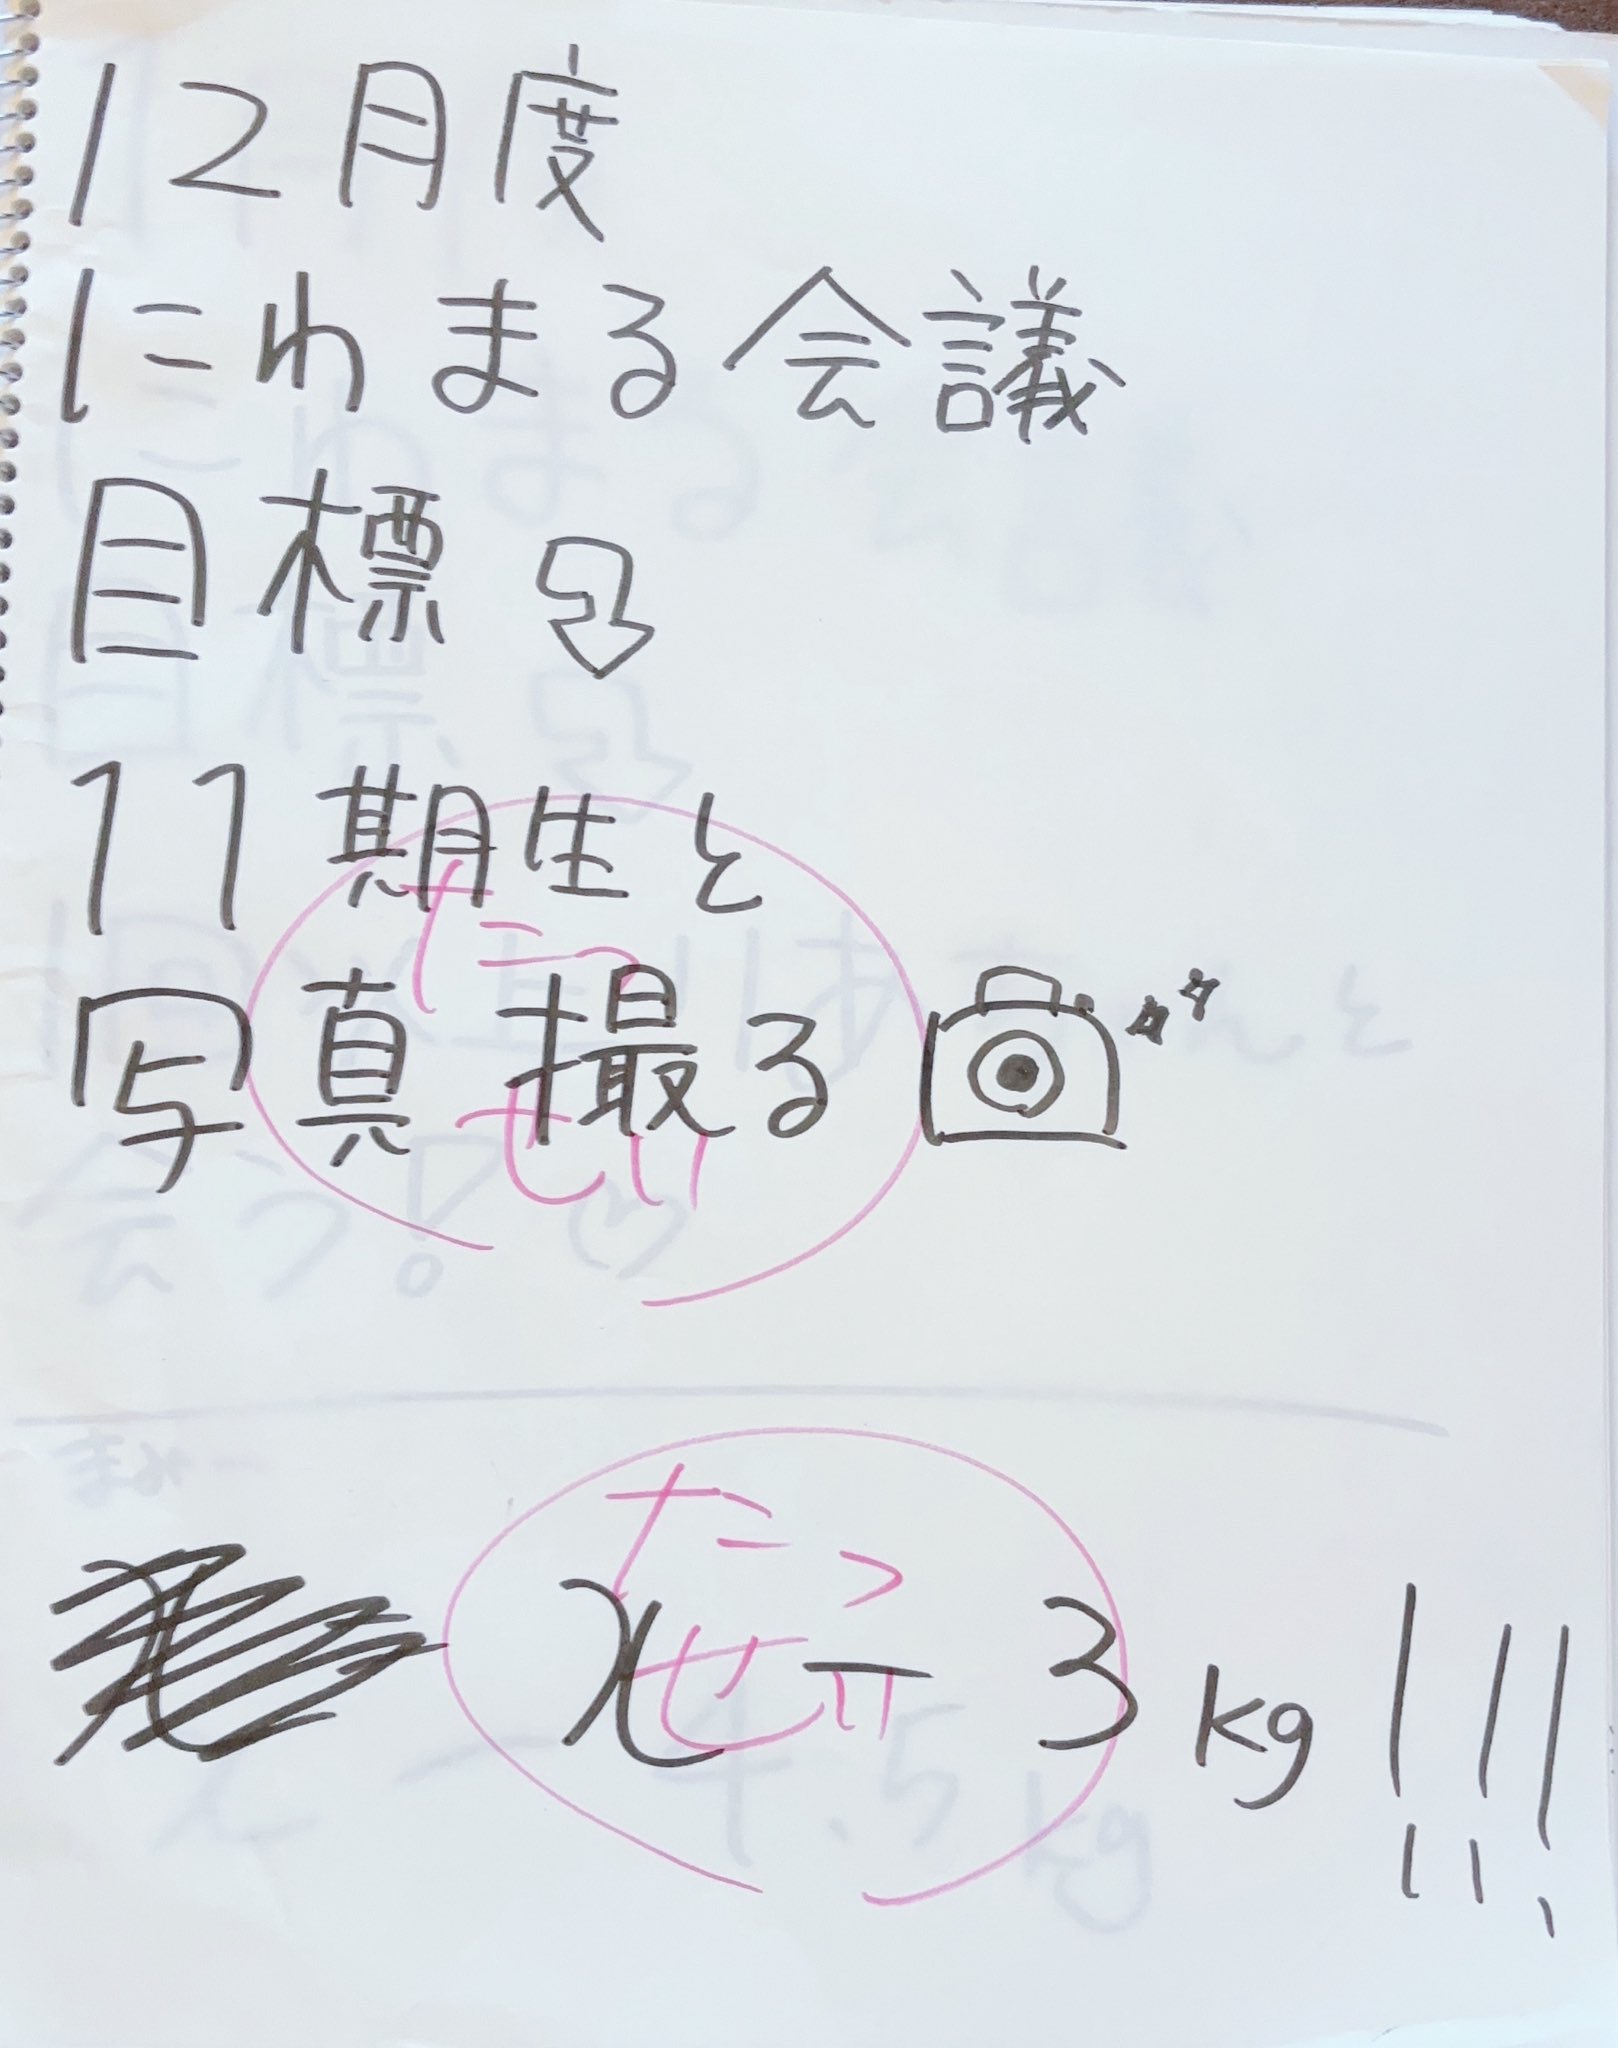 12月度
にわまる会議
目標
11期生と
写真撮る
たっ
せい
たっ
せい
x - 3kg!!!